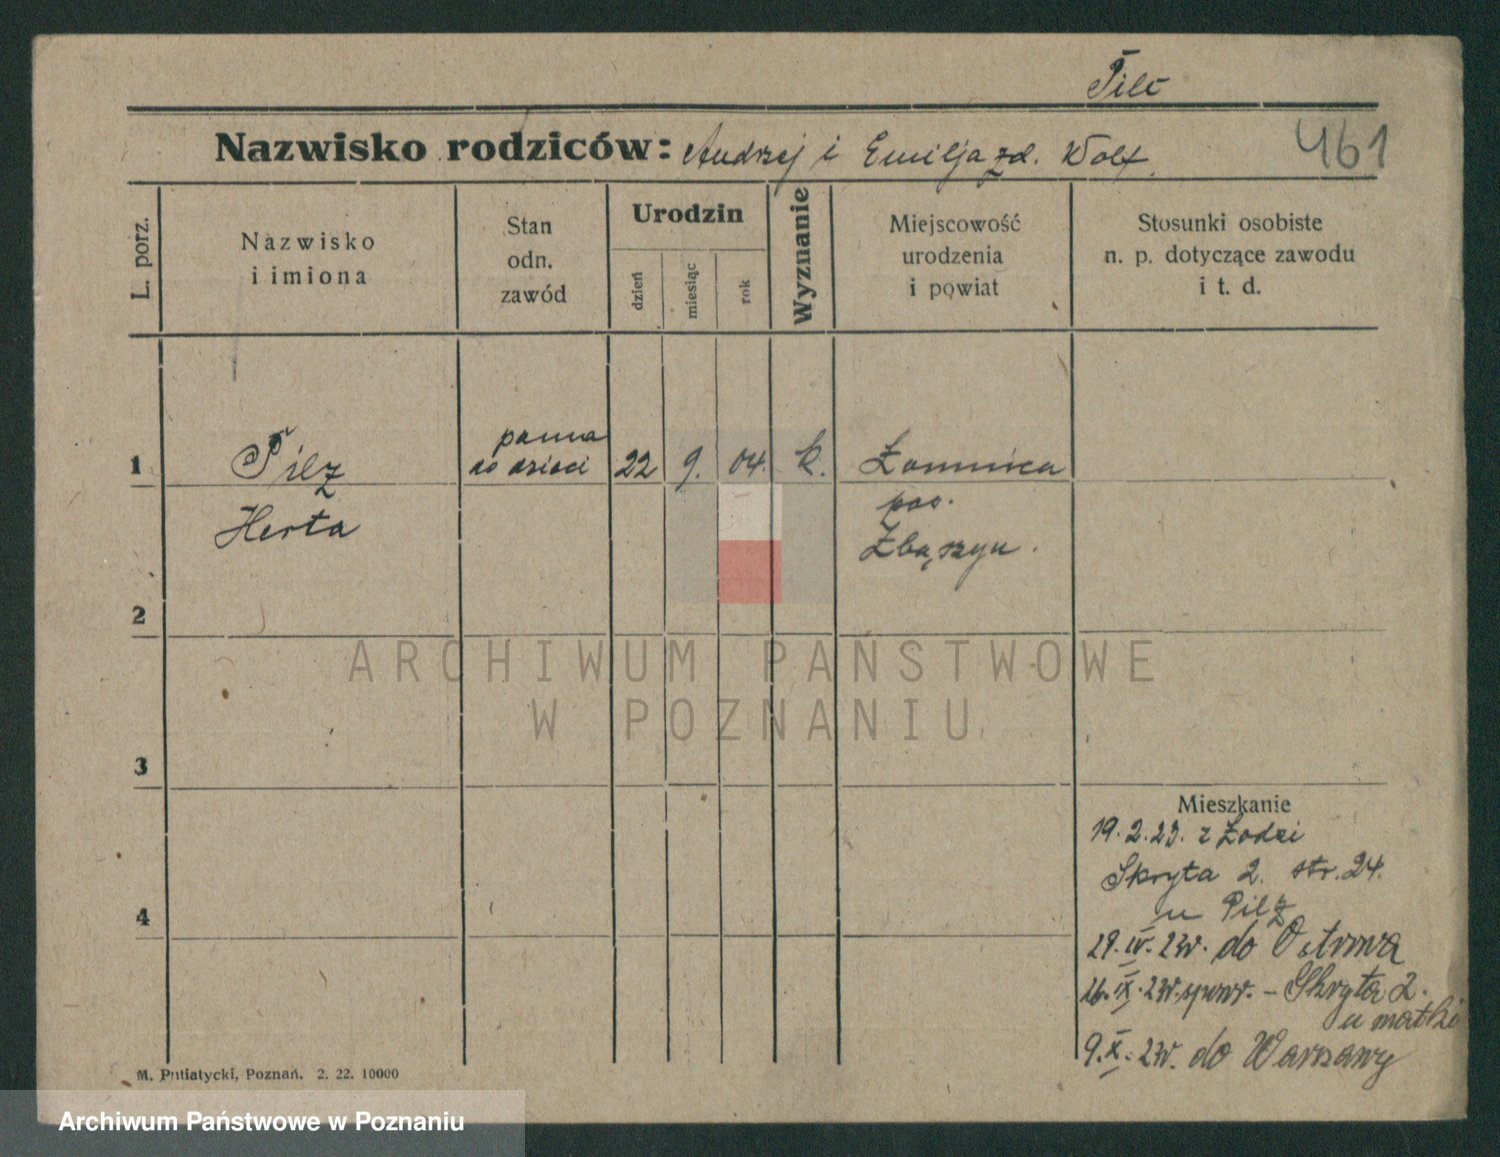 Nazwisko rodziców: Andrzej i Emilja zd. Wolf
461
L. porz.
Nazwisko
i imiona
Stan
odn.
zawód
Urodzin
dzień
miesiąc
rok
Wyznanie
Miejscowość
urodzenia
i powiat
Stosunki osobiste
n. p. dotyczące zawodu
i t. d.
1
Pilz
Herta
panna
do dzieci
22
9.
04.
k.
Łomnica
pow.
Zbąszyn.
2
3
4
Mieszkanie
19.2.23. z Łodzi
Skryta 2. str. 24.
u Pilz
29.IV.23r. do Ostrowa
26.IX.23r. spowr. - Skryta 2.
u matki
9.X.23r. do Warszawy
M. Putiatycki, Poznań. 2. 22. 10000
ARCHIWUM PAŃSTWOWE
W POZNANIU
Archiwum Państwowe w Poznaniu